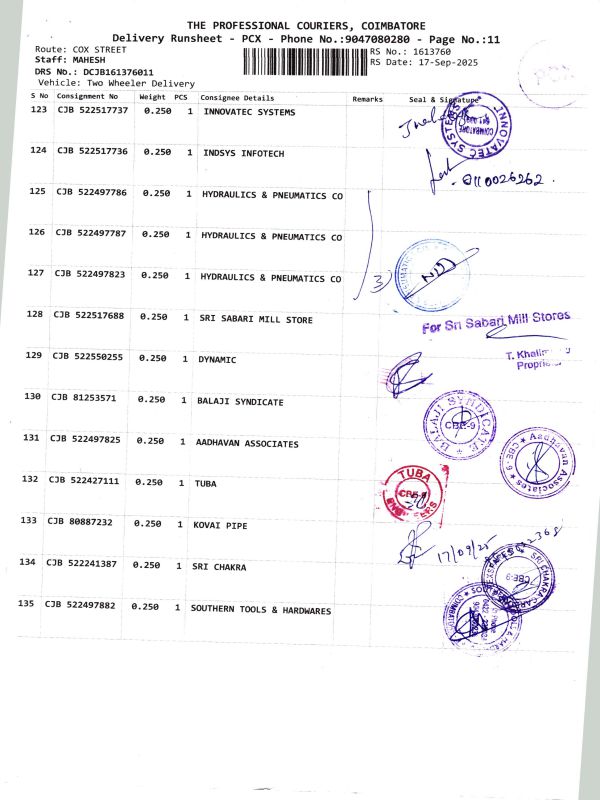 THE PROFESSIONAL COURIERS, COIMBATORE
Delivery Runsheet - PCX - Phone No.:9047080280 - Page No.:11
Route: COX STREET
RS No.: 1613760
Staff: MAHESH
RS Date: 17-Sep-2025
DRS No.: DCJB161376011
Vehicle: Two Wheeler Delivery
PCX
S No Consignment No Weight PCS Consignee Details Remarks Seal & Signature
123 CJB 522517737 0.250 1 INNOVATEC SYSTEMS
INNOVATEC SYSTEMS
COIMBATORE
124 CJB 522517736 0.250 1 INDSYS INFOTECH
125 CJB 522497786 0.250 1 HYDRAULICS & PNEUMATICS CO
126 CJB 522497787 0.250 1 HYDRAULICS & PNEUMATICS CO
127 CJB 522497823 0.250 1 HYDRAULICS & PNEUMATICS CO
3)
128 CJB 522517688 0.250 1 SRI SABARI MILL STORE
For Sri Sabari Mill Stores
129 CJB 522550255 0.250 1 DYNAMIC
130 CJB 81253571 0.250 1 BALAJI SYNDICATE
BALAJI SYNDICATE
CBE-9
131 CJB 522497825 0.250 1 AADHAVAN ASSOCIATES
Aadhavan Associates
CBE-9
132 CJB 522427111 0.250 1 TUBA
TUBA
133 CJB 80887232 0.250 1 KOVAI PIPE
17/09/25
134 CJB 522241387 0.250 1 SRI CHAKRA
SRI CHAKRA
CBE-9
135 CJB 522497882 0.250 1 SOUTHERN TOOLS & HARDWARES